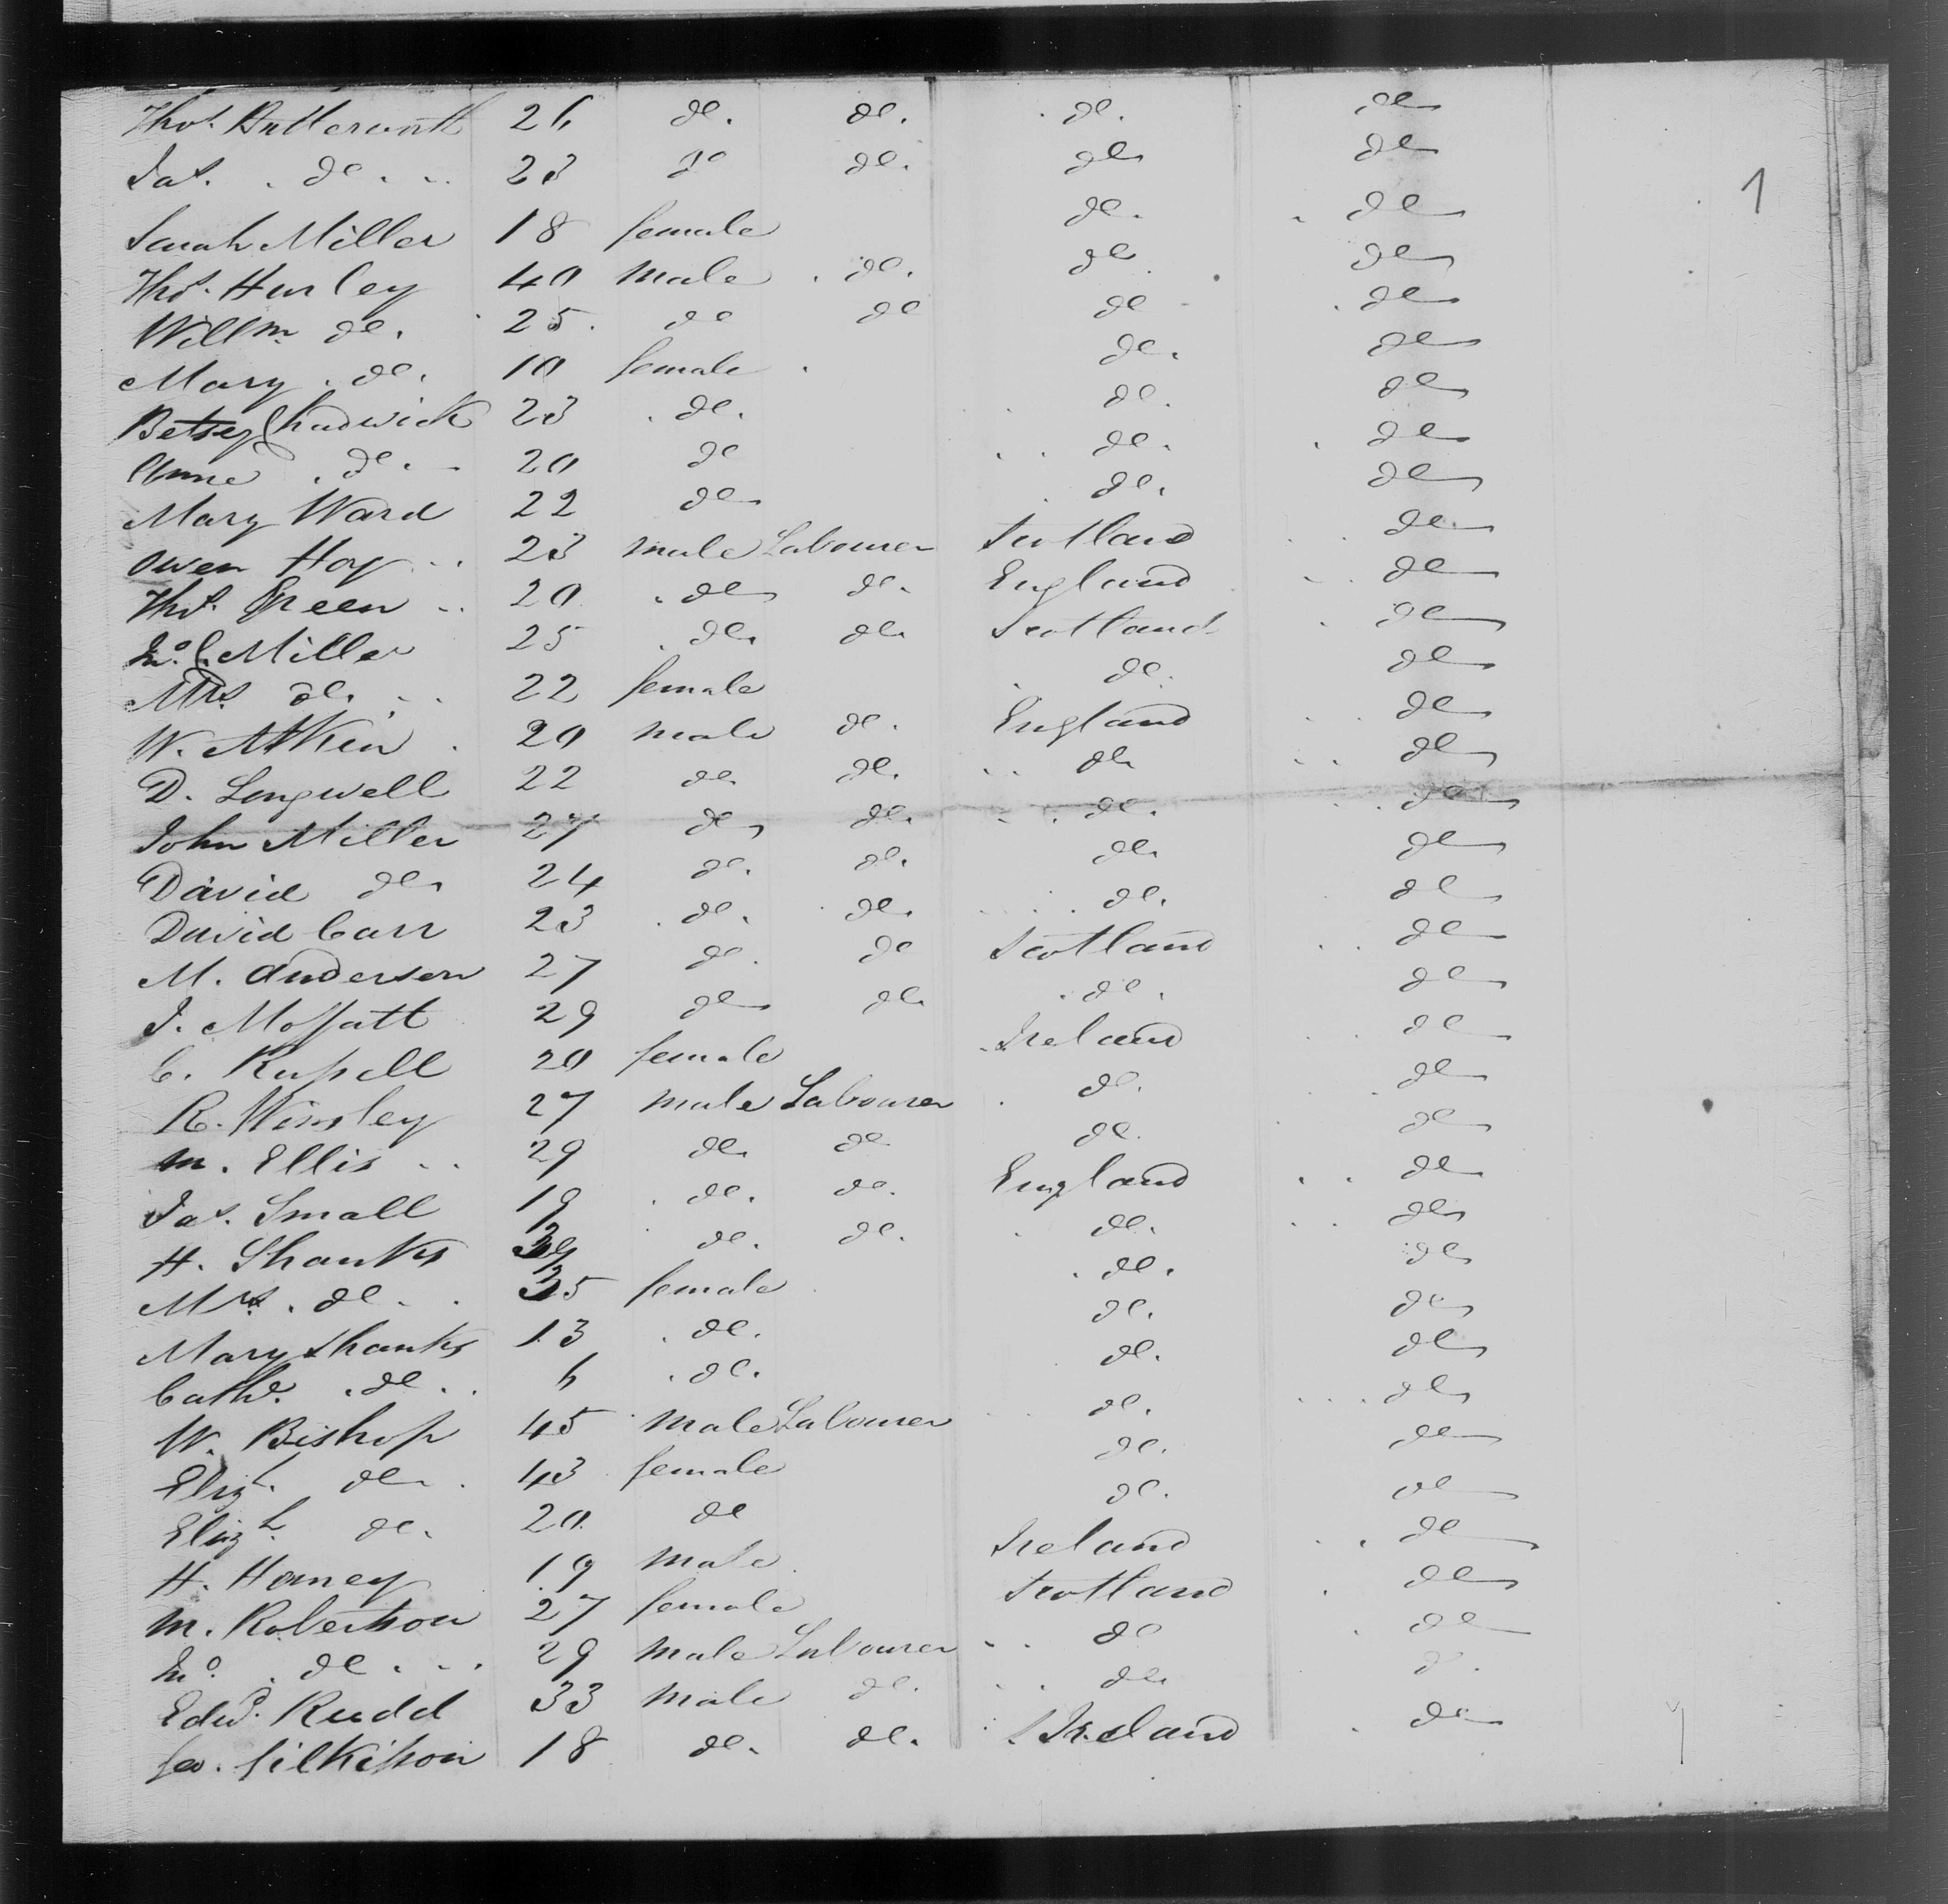 Thos. Butterworth 26 do. do. do. do
Jas. do. 23 do do. do do
Sarah Miller 18 female do. do
Thos. Hurley 40 male do. do do
Willm. do. 25 do do do do
Mary do. 10 female do. do
Betsey Chadwick 23 do. do. do
Anne do. 20 do do. do
Mary Ward 22 do do. do
Owen Hoy 23 male Labourer Scotland do
Thos. Green 20 do do. England do
Jno. C. Miller 25 do. do Scotland do
Mrs. do. 22 female do. do
W. Atkin 20 male do. England do
D. Longwell 22 do do. do do
John Miller 27 do do. do. do
David do 24 do. do. do do
David Carr 23 do. do. do. do
M. Anderson 27 do. do Scotland do
J. Moffatt 29 do do do. do
C. Russell 20 female Ireland do
R. Winsley 27 male Labourer do. do
M. Ellis 29 do. do do. do
Jas. Small 19 do. do. England do
H. Shanks 39 do. do. do. do
Mrs. do. 35 female do. do
Mary Shanks 13 do. do. do
Cathe. do. 6 do. do. do
W. Bishop 45 male Labourer do. do
Elizh. do. 43 female do. do
Elizh. do. 20 do do. do
H. Haney 19 male Ireland do
M. Robertson 27 female Scotland do
Jno. do. 29 male Labourer do do
Edwd. Rudd 33 male do. do. do.
Geo. Gilkisson 18 do. do. Ireland do
1